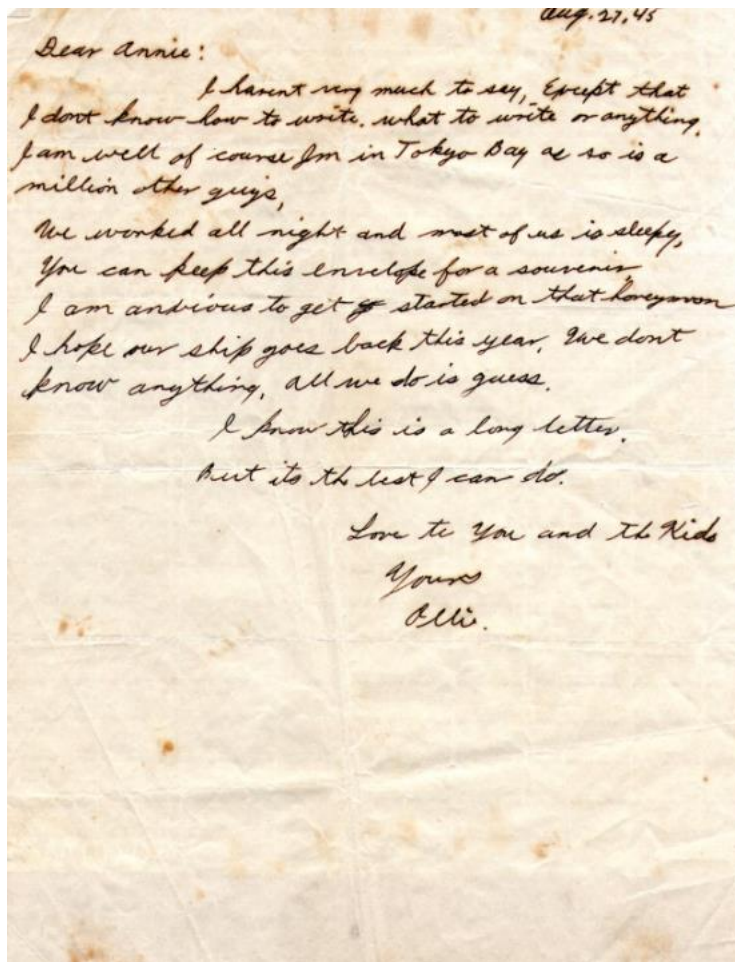 Aug. 27, 45
Dear Annie:
I havent very much to say, Except that
I dont know how to write, what to write or anything.
I am well of course Im in Tokyo Bay as so is a
million other guys,
We worked all night and most of us is sleepy,
You can keep this envelope for a souvenir
I am anxious to get started on that honeymoon
I hope our ship goes back this year. We dont
know anything, all we do is guess.
I know this is a long letter.
But its the best I can do.
Love to You and the Kids
Yours
Ollie.